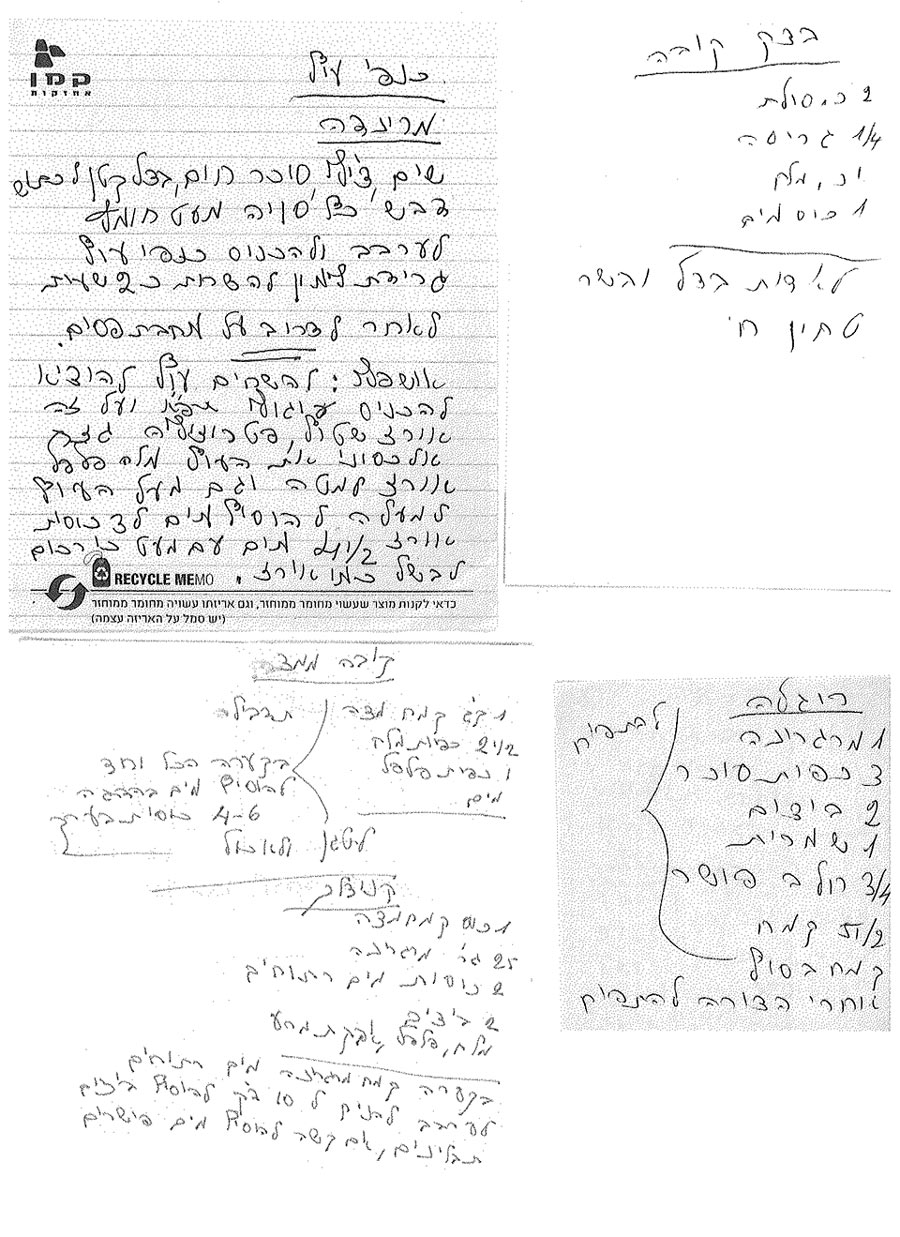 קמן
אחזקות
כנפי עוף
מרינדה
שים צ'ילי סוכר חום, בצל קטן לכתוש
דבש, סויה מעט חומץ
לערבב ולהכניס כנפי עוף
גרידת לימון להשרות כ 2 שעות
לאחר לצרוב על מחבת פסים.
להשחים עוף להוציא
להכניס ועל זה
אורז פטרוזיליה גזר
את העוף מלח פלפל
אורז למטה וגם מעל העוף
למעלה להוסיף מים ל 3 כוסות
אורז 4 1/2 מים עם מעט כורכום
לבשל כמו אורז.
RECYCLE MEMO
כדאי לקנות מוצר שעשוי מחומר ממוחזר, וגם אריזתו עשויה מחומר ממוחזר
(יש סמל על האריזה עצמה)
בצק קובה
2 כ. סולת
1/4 גריסה
1 כ. מלח
1 כוס מים
לאדות בצל ובשר
טחון
קובה ממצה
1 קג קמח מצה
2 1/2 כפיות מלח
1 כפית פלפל
מים
בקערה הכל
להוסיף מים בהדרגה
4-6 כוסות בערך
לטגן ולאכול
קניידלך
1 כוס קמח מצה
25 גר' מרגרינה
2 כוסות מים רותחים
2 ביצים
מלח, פלפל, אבקת מרק
בקערה קמח מרגרינה מים רותחים
לערבב להניח ל 10 דק להוסיף ביצים
תבלינים, אם קשה להוסיף מים פושרים
רוגלה
1 מרגרינה
3 כפות סוכר
2 ביצים
1 שמרית
3/4 חלב פושר
5 1/2 קמח
קמח בסוף
להתפיח
אחרי הצורה להתפיח